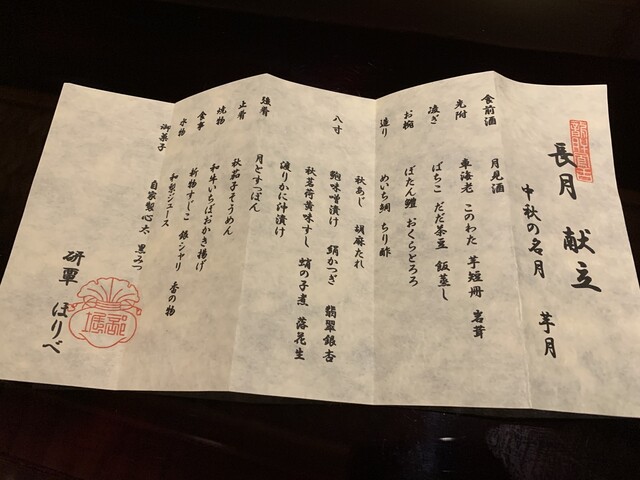 長月 献立
中秋の名月 芋月
食前酒 月見酒
先附 車海老 このわた 芋短冊 岩茸
凌ぎ ばちこ だだ茶豆 飯蒸し
お椀 ぼたん鱧 おくらとろろ
造り めいち鯛 ちり酢
秋あじ 胡麻たれ
八寸 鮑味噌漬け 絹かつぎ 翡翠銀杏
秋茗荷黄味すし 蛸の子煮 落花生
渡りかに沖漬け
強肴 月とすっぽん
止肴 秋茄子そうめん
焼物 和牛いちぼおかき揚げ
食事 新物すじこ 銀シャリ 香の物
水物 和梨ジュース
御菓子 自家製心太 黒みつ
研覃 ほりべ